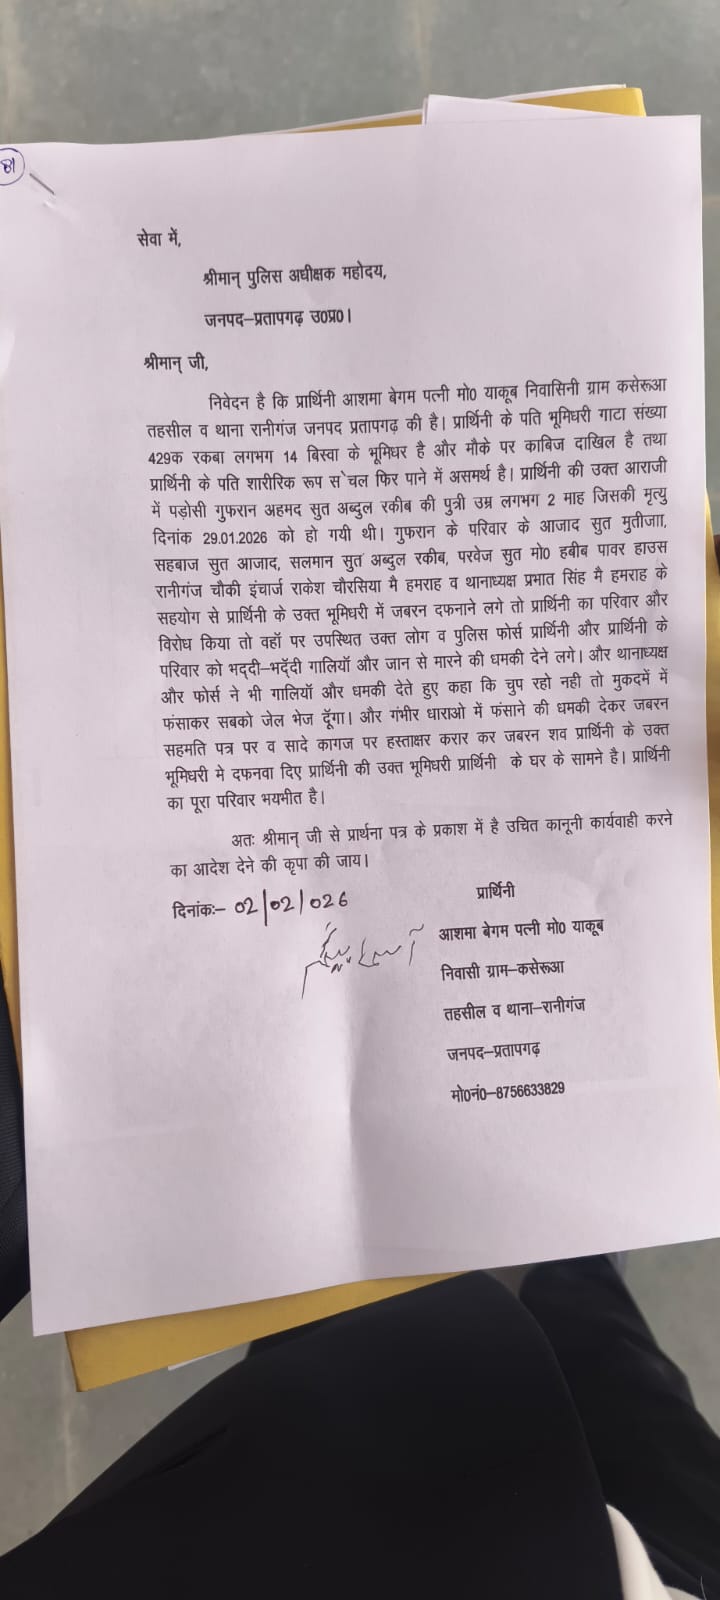 81
सेवा में,
श्रीमान् पुलिस अधीक्षक महोदय,
जनपद–प्रतापगढ़ उ0प्र0।
श्रीमान् जी,
निवेदन है कि प्रार्थिनी आशमा बेगम पत्नी मो0 याकूब निवासिनी ग्राम कसेरूआ
तहसील व थाना रानीगंज जनपद प्रतापगढ़ की है। प्रार्थिनी के पति भूमिधरी गाटा संख्या
429क रकबा लगभग 14 बिस्वा के भूमिधर है और मौके पर काबिज दाखिल है तथा
प्रार्थिनी के पति शारीरिक रूप स`चल फिर पाने में असमर्थ है। प्रार्थिनी की उक्त आराजी
में पड़ोसी गुफरान अहमद सुत अब्दुल रकीब की पुत्री उम्र लगभग 2 माह जिसकी मृत्यु
दिनांक 29.01.2026 को हो गयी थी। गुफरान के परिवार के आजाद सुत मुतीजाा,
सहबाज सुत आजाद, सलमान सुत अब्दुल रकीब, परवेज सुत मो0 हबीब पावर हाउस
रानीगंज चौकी इंचार्ज राकेश चौरसिया मै हमराह व थानाध्यक्ष प्रभात सिंह मै हमराह के
सहयोग से प्रार्थिनी के उक्त भूमिधरी में जबरन दफनाने लगे तो प्रार्थिनी का परिवार और
विरोध किया तो वहॉ पर उपस्थित उक्त लोग व पुलिस फोर्स प्रार्थिनी और प्रार्थिनी के
परिवार को भद्दी–भद्दॅी गालियॉ और जान से मारने की धमकी देने लगे। और थानाध्यक्ष
और फोर्स ने भी गालियॉ और धमकी देते हुए कहा कि चुप रहो नही तो मुकदमें में
फंसाकर सबको जेल भेज दूॅगा। और गंभीर धाराओ में फंसाने की धमकी देकर जबरन
सहमति पत्र पर व सादे कागज पर हस्ताक्षर करार कर जबरन शव प्रार्थिनी के उक्त
भूमिधरी मे दफनवा दिए प्रार्थिनी की उक्त भूमिधरी प्रार्थिनी के घर के सामने है। प्रार्थिनी
का पूरा परिवार भयभीत है।
अतः श्रीमान् जी से प्रार्थना पत्र के प्रकाश में है उचित कानूनी कार्यवाही करने
का आदेश देने की कृपा की जाय।
दिनांकः– 02/02/026
प्रार्थिनी
आशमा बेगम पत्नी मो0 याकूब
निवासी ग्राम–कसेरूआ
तहसील व थाना–रानीगंज
जनपद–प्रतापगढ़
मो0नं0–8756633829